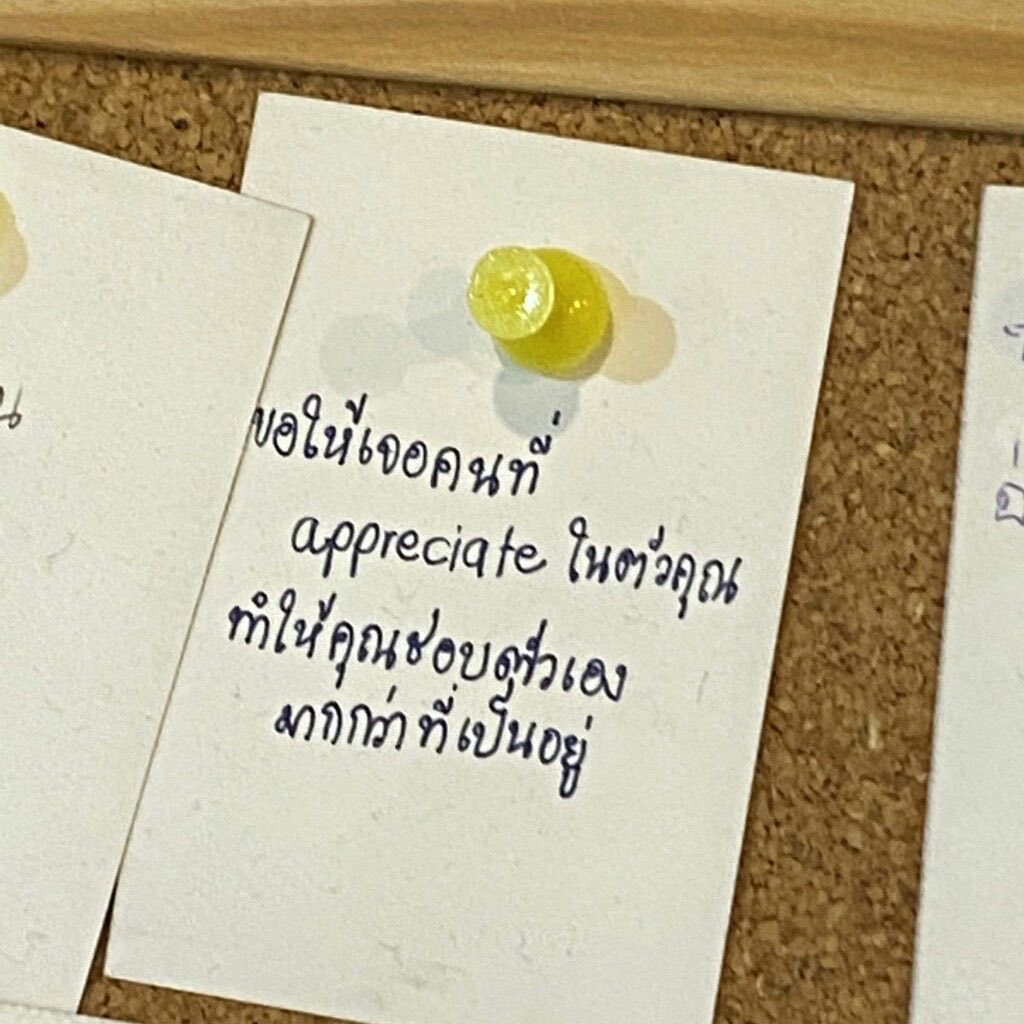 ขอให้เจอคนที่
appreciate ในตัวคุณ
ทำให้คุณชอบตัวเอง
มากกว่าที่เป็นอยู่